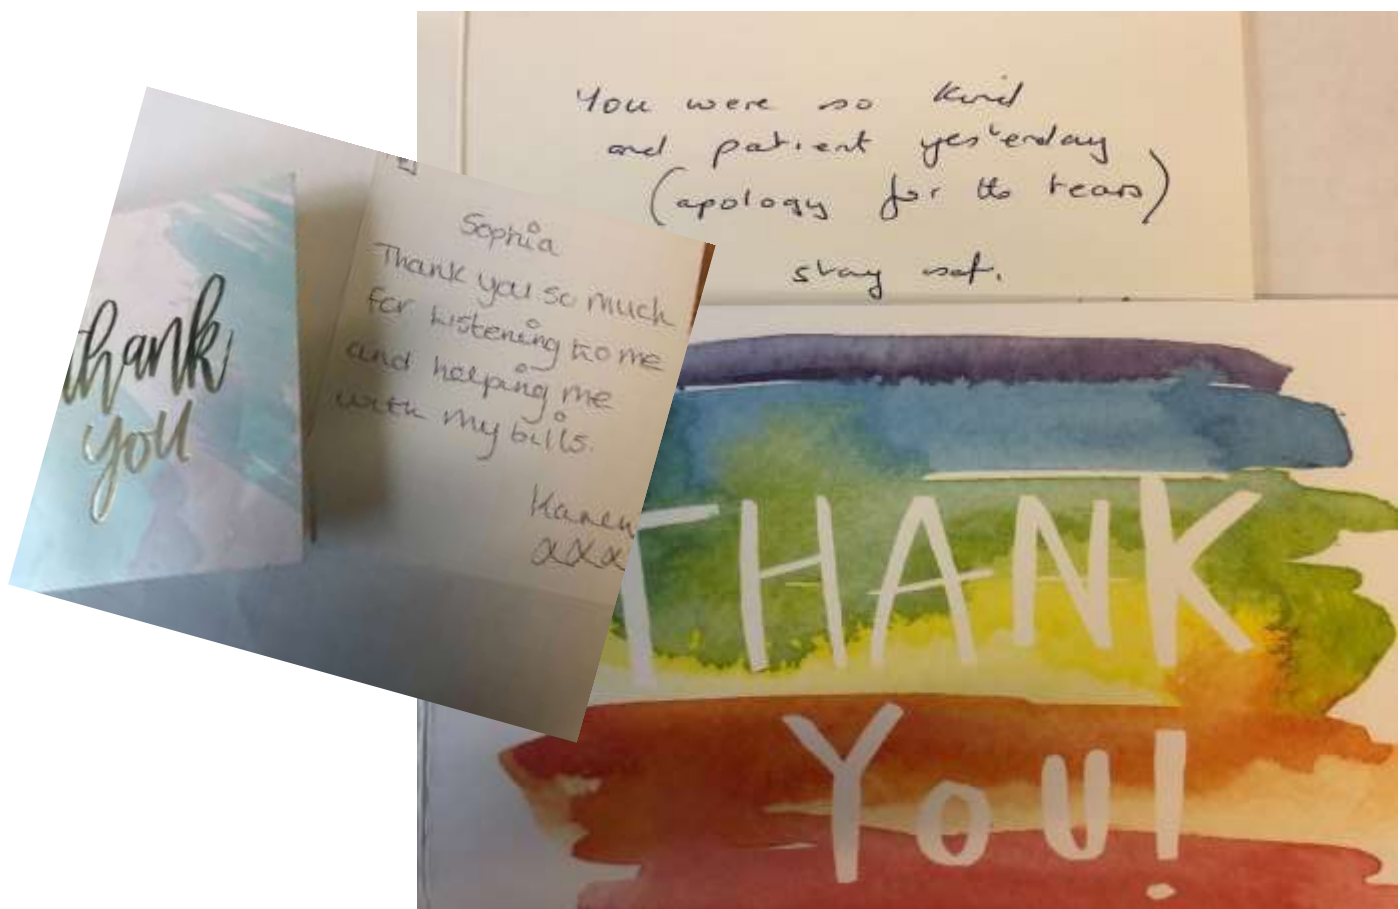 thank
you
Sophia
Thank you so much
for listening to me
and helping me
with my bills.
Karen
xxx
You were so kind
and patient yesterday
(apology for the tears)
stay safe.
THANK
YOU!